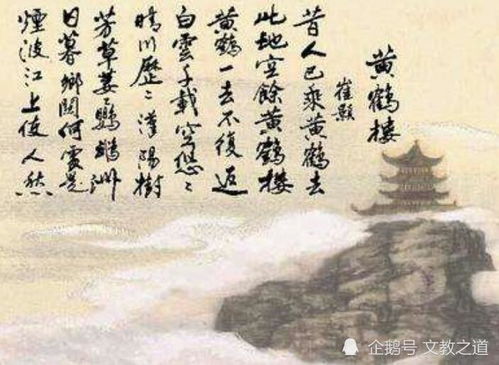 黄鹤楼
崔颢
昔人已乘黄鹤去
此地空餘黄鹤楼
黄鹤一去不復返
白雲千載空悠〻
晴川歷〻漢陽樹
芳草萋〻鸚鵡洲
日暮鄉関何處是
煙波江上使人愁
企鹅号 文教之道